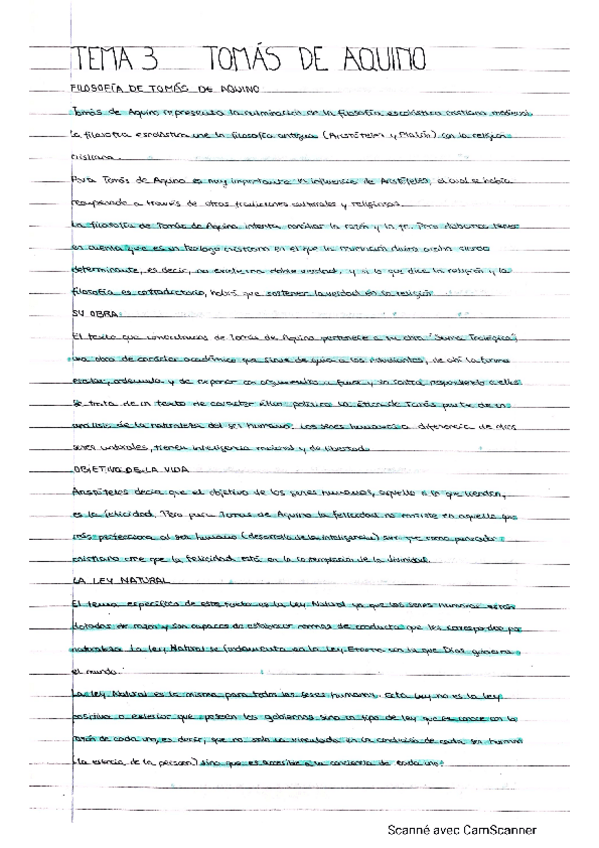 TEMA 3 TOMÁS DE AQUINO
FILOSOFÍA DE TOMÁS DE AQUINO
Tomás de Aquino representa la culminación de la filosofía escolástica cristiana medieval.
La filosofía escolástica une la filosofía antigua (Aristóteles y Platón) con la religión
cristiana.
Para Tomás de Aquino es muy importante la influencia de Aristóteles, el cual se había
recuperado a través de otras tradiciones culturales y religiosas.
La filosofía de Tomás de Aquino intenta conciliar la razón y la fe. Pero debemos tener
en cuenta que es un teólogo cristiano en el que la revelación divina acaba siendo
determinante, es decir, no existe una doble verdad, y si lo que dice la religión y la
filosofía es contradictorio, habrá que sostener la verdad en la religión
SU OBRA
El texto que comentamos de Tomás de Aquino pertenece a su obra "Suma Teológica",
una obra de carácter académico que sirve de guía a los estudiantes, de ahí la forma
escolar, ordenada y de exponer con argumentos a favor y en contra respondiendo a ellos
Se trata de un texto de carácter ético político. La Ética de Tomás parte de un
análisis de la naturaleza del ser humano. Los seres humanos a diferencia de otros
seres naturales, tienen inteligencia racional y de libertad.
OBJETIVO DE LA VIDA
Aristóteles decía que el objetivo de los seres humanos, aquello a lo que tienden,
es la felicidad. Pero para Tomás de Aquino la felicidad no consiste en aquello que
más perfecciona al ser humano (desarrollo de la inteligencia) sino que como pensador
cristiano cree que la felicidad está en la contemplación de la divinidad.
LA LEY NATURAL
El tema específico de este texto es la Ley Natural ya que los seres humanos están
dotados de razón y son capaces de establecer normas de conducta que les corresponden por
naturaleza. La Ley Natural se fundamenta en la Ley Eterna con la que Dios gobierna
el mundo.
La Ley Natural es la misma para todos los seres humanos. Esta Ley no es la ley
positiva o exterior que poseen los gobiernos sino un tipo de ley que se conoce con la
razón de cada uno, es decir, que no solo va vinculado en la condición de cada ser humano
(la esencia de la persona) sino que es accesible a la conciencia de cada uno.
Scanné avec CamScanner